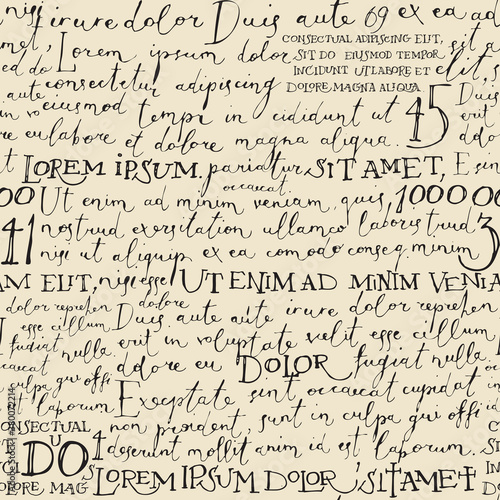 nisi irure dolor Duis aute 69 ex ea ad
met, Lorem ipsum dolor CONSECTUAL ADIPISCING ELIT, sit a
SIT DO EIUSMOD TEMPOR
ed do consectetur adipiscing INCIDUNT UT LABORE ET elit, s
aute eiusmod tempr in cididunt ut DOLORE MAGNA ALIQUA 45 Duis
re eu labore et dolore magna aliqua. erit
LOREM IPSUM, pariatur SIT AMET, E sin
occaecat
00 Ut enim ad minim veniam, quis, 10000
41 nostrud exersitation ullamco laboris trud 3
nisi ut aliquip ex ea comodo conseq minim
AM ELIT, nisi esse UT ENIM AD MINIM VENIA
dolor reprehen dolore Duis aute aute irure dolor reprehen
esse cillum erit in voluptate velit esse cillum
fugiat nulla dolore eu DOLOR fugiat nulla
culpa qui offi Exceptate sint occaecat cupidat
t laborum non proident, sunt in culpa qui offi
CONSECTUAL
U
DO 4 deserunt mollit anim id est laborum.
ORE MAG LOREM IPSUM DOLOR SIT AMET